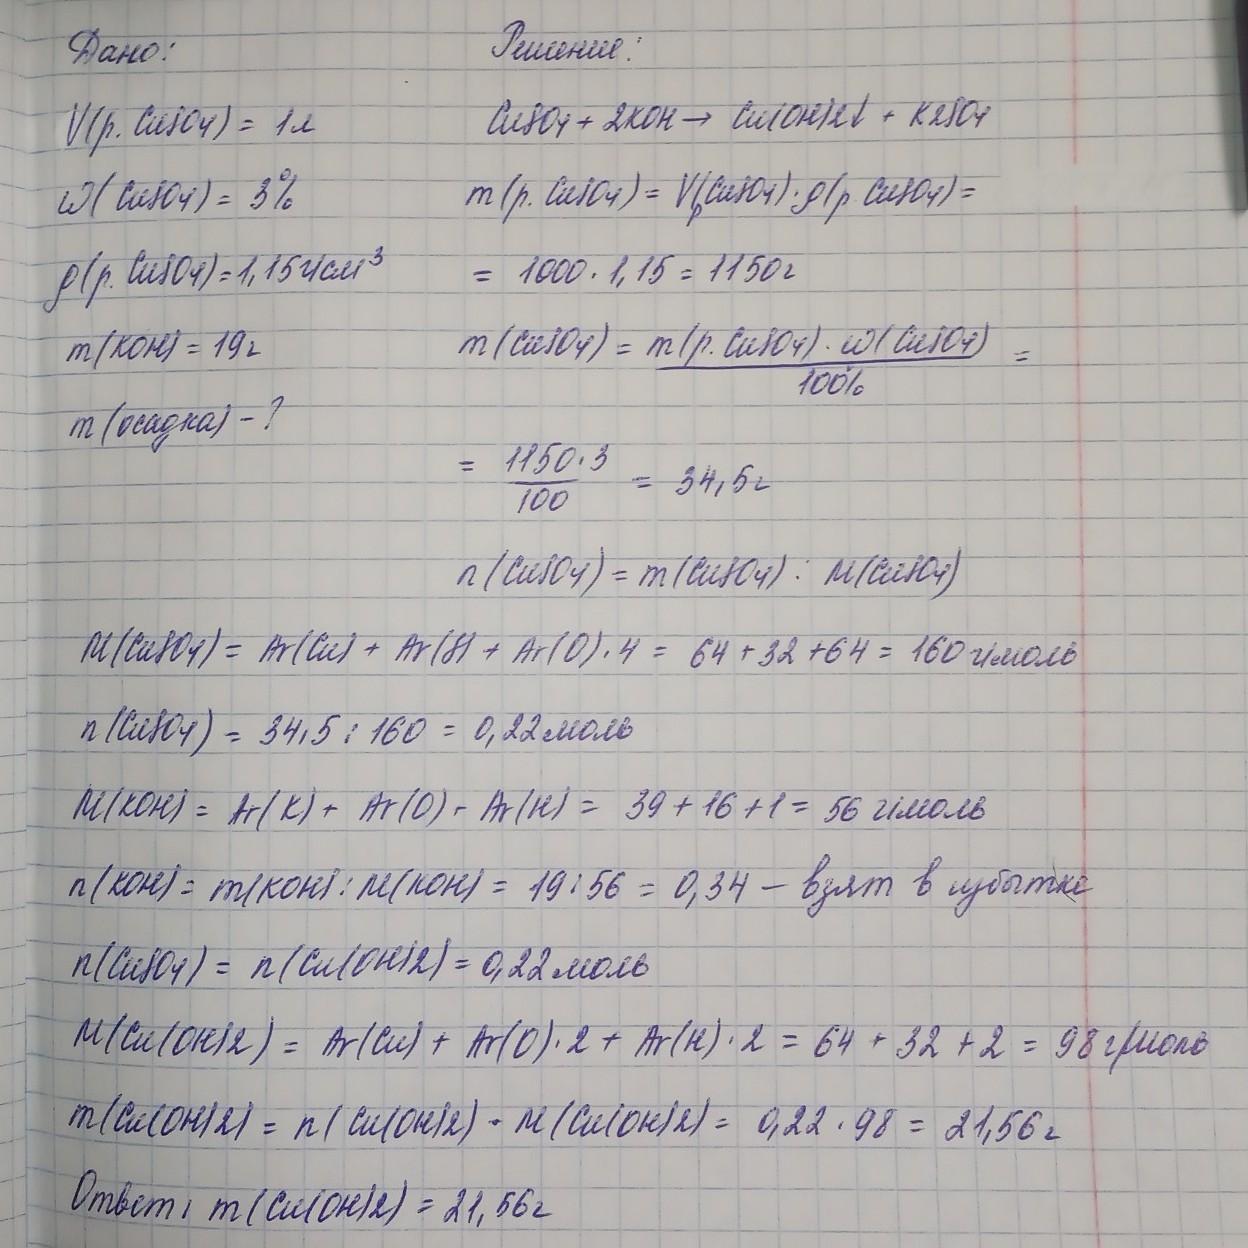 Дано:
Решение:
V(р. CuSO4) = 1л
CuSO4 + 2KOH → Cu(OH)2↓ + K2SO4
ω(CuSO4) = 3%
m(р. CuSO4) = Vр(CuSO4)·ρ(р CuSO4) =
ρ(р. CuSO4) = 1,15г/см³
= 1000 · 1,15 = 1150г
m(KOH) = 19г
m(CuSO4) = m(р. CuSO4) · ω(CuSO4) / 100% =
m(осадка) - ?
= 1150·3 / 100 = 34,5г
n(CuSO4) = m(CuSO4) : M(CuSO4)
M(CuSO4) = Ar(Cu) + Ar(S) + Ar(O)·4 = 64 + 32 + 64 = 160 г/моль
n(CuSO4) = 34,5 : 160 = 0,22 моль
M(KOH) = Ar(K) + Ar(O) + Ar(H) = 39 + 16 + 1 = 56 г/моль
n(KOH) = m(KOH) : M(KOH) = 19 : 56 = 0,34 – взят в избытке
n(CuSO4) = n(Cu(OH)2) = 0,22 моль
M(Cu(OH)2) = Ar(Cu) + Ar(O)·2 + Ar(H)·2 = 64 + 32 + 2 = 98 г/моль
m(Cu(OH)2) = n(Cu(OH)2) · M(Cu(OH)2) = 0,22 · 98 = 21,56г
Ответ: m(Cu(OH)2) = 21,56г